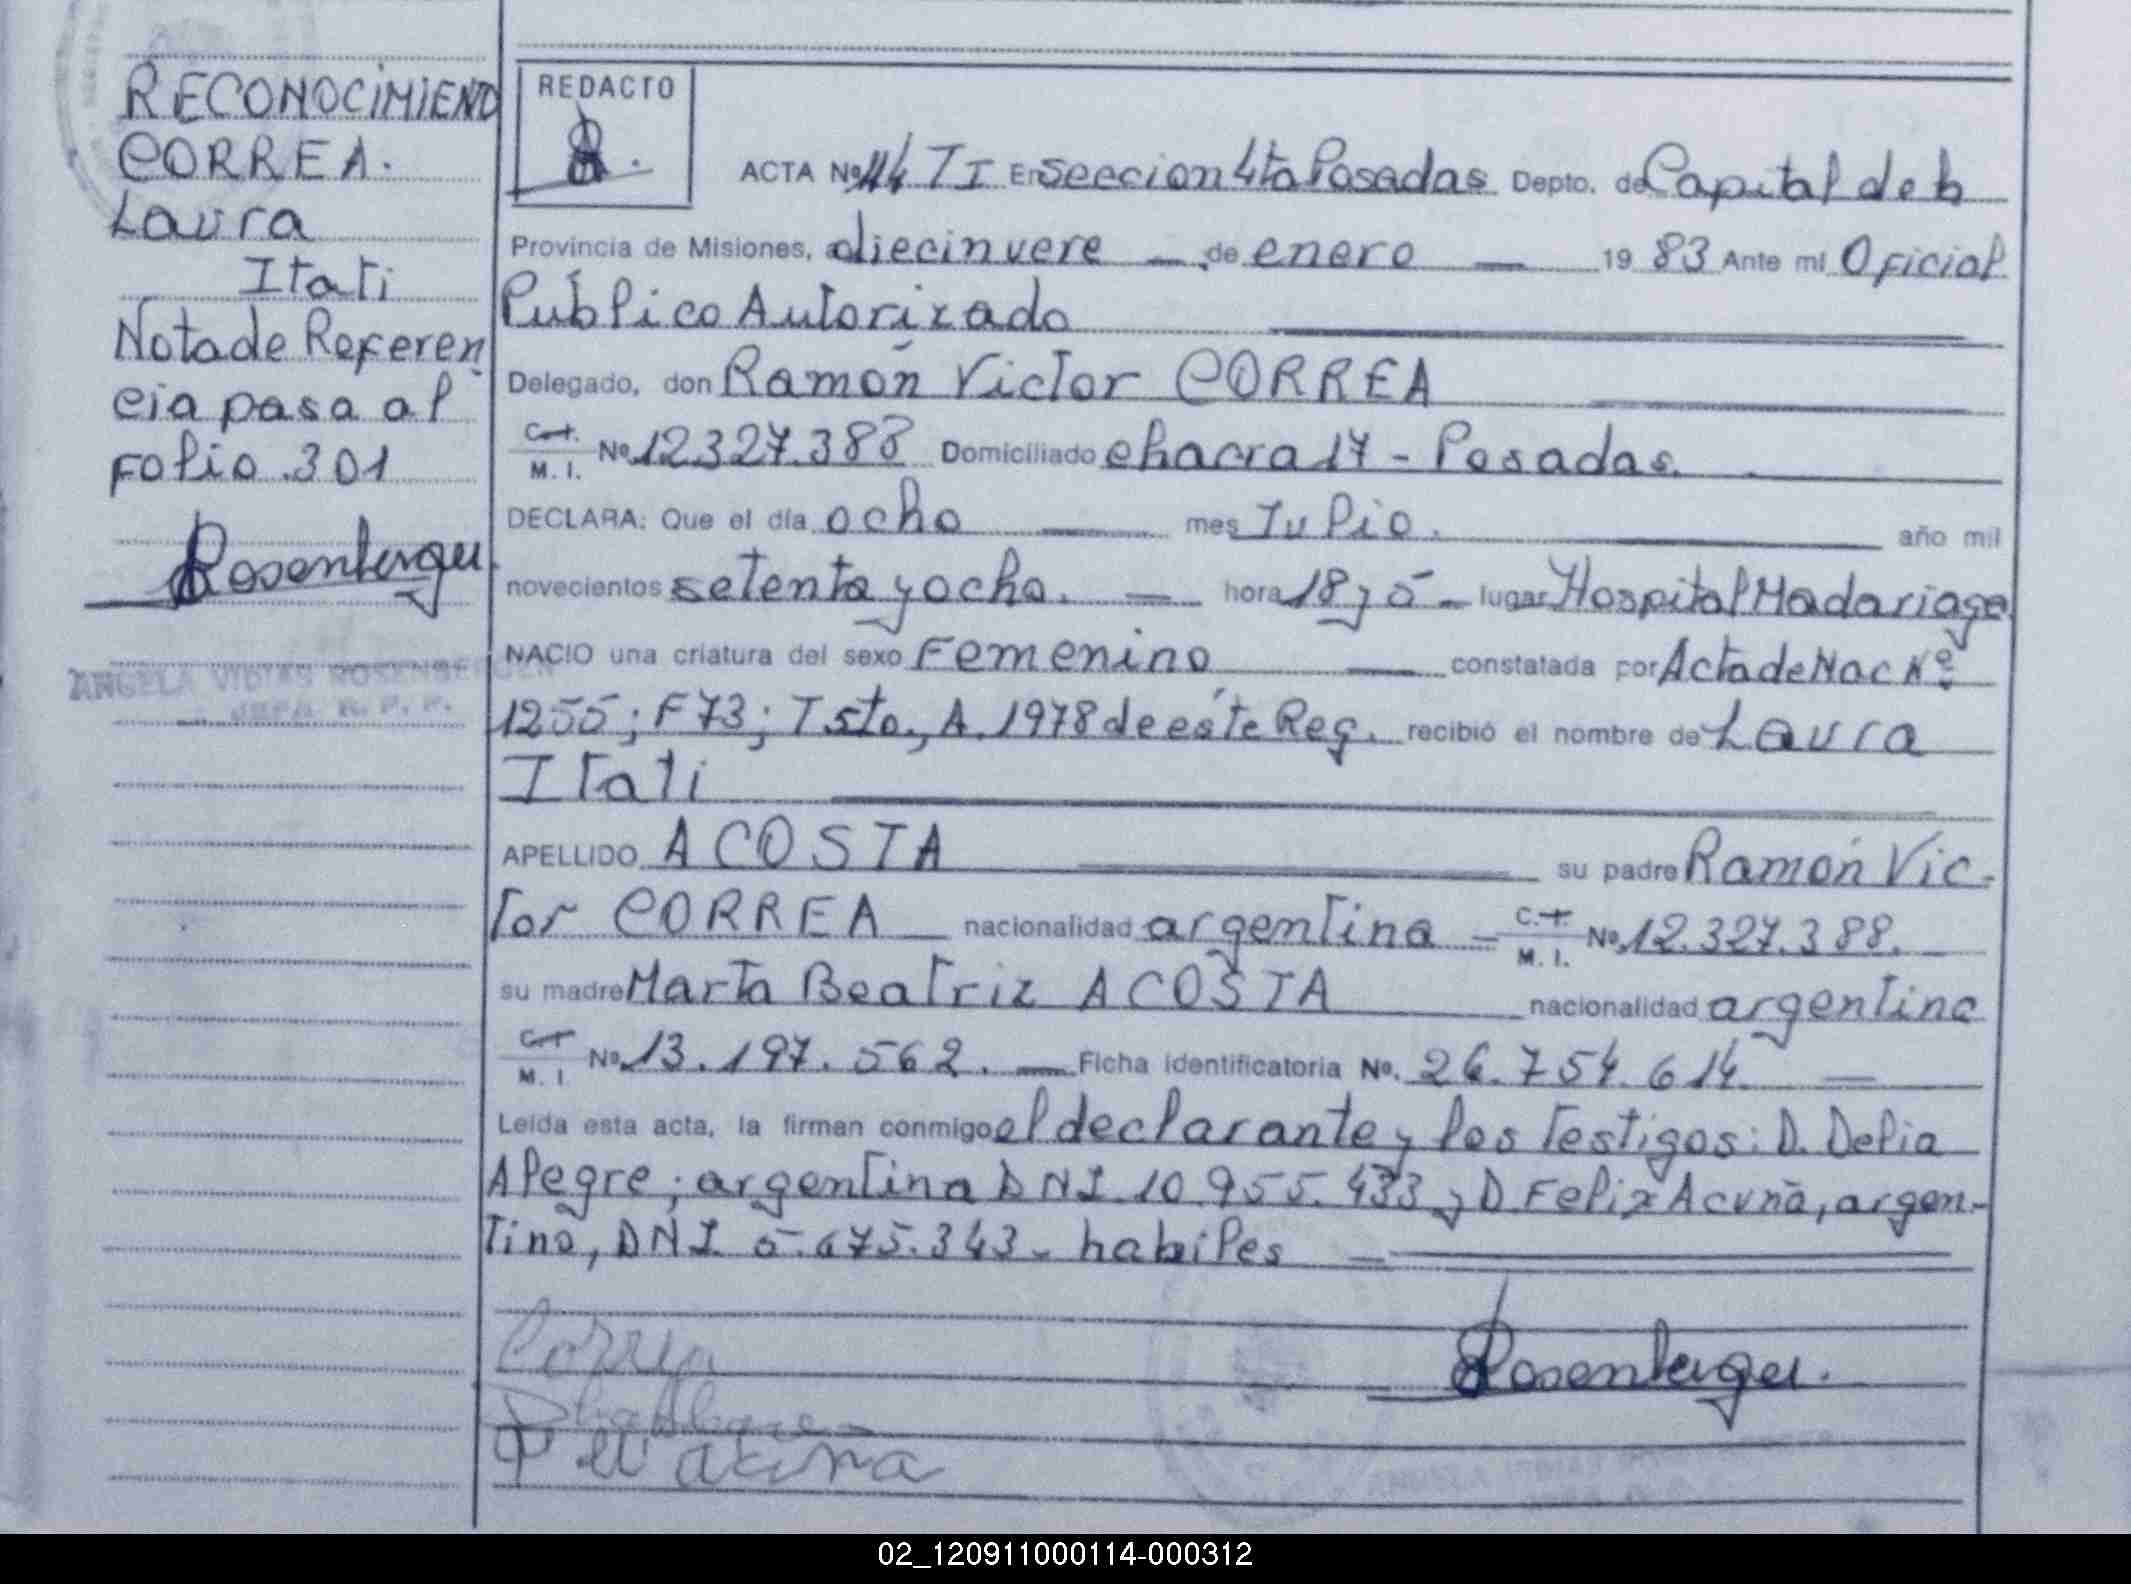 RECONOCIMIENTO
CORREA.
Laura
Itati
Nota de Referen
cia pasa al
Folio .301
Rosenberger
ANGELA VIDIAS ROSENBERGER
JEFA R. P. P.
REDACTO
ACTA Nº 114 T I En Seccion 4ta Posadas Depto. de Capital de la
Provincia de Misiones, diecinueve de enero 19 83 Ante mi Oficial
Público Autorizado
Delegado, don Ramón Victor CORREA
C.I. M. I. Nº 12.327.388 Domiciliado chacra 17 - Posadas.
DECLARA: Que el día ocho mes Julio. año mil
novecientos setenta y ocho. hora 18 y 5 lugar Hospital Madariaga
NACIO una criatura del sexo Femenino constatada por Acta de Nac Nº
1255; F 73; T 5to., A. 1978 de éste Reg. recibió el nombre de Laura
Itati
APELLIDO ACOSTA su padre Ramón Vic-
tor CORREA nacionalidad argentina C.I. M. I. Nº 12.327.388.
su madre Marta Beatriz ACOSTA nacionalidad argentina
C.I. M. I. Nº 13.197.562. Ficha identificatoria No. 26.754.614.
Leida esta acta, la firman conmigo el declarante y los testigos: D. Delia
Alegre; argentina DNI 10.955.433 y D Felix Acuña, argen-
tino, DNI 5.675.343. habiles
Correa
Rosenberger.
02_120911000114-000312